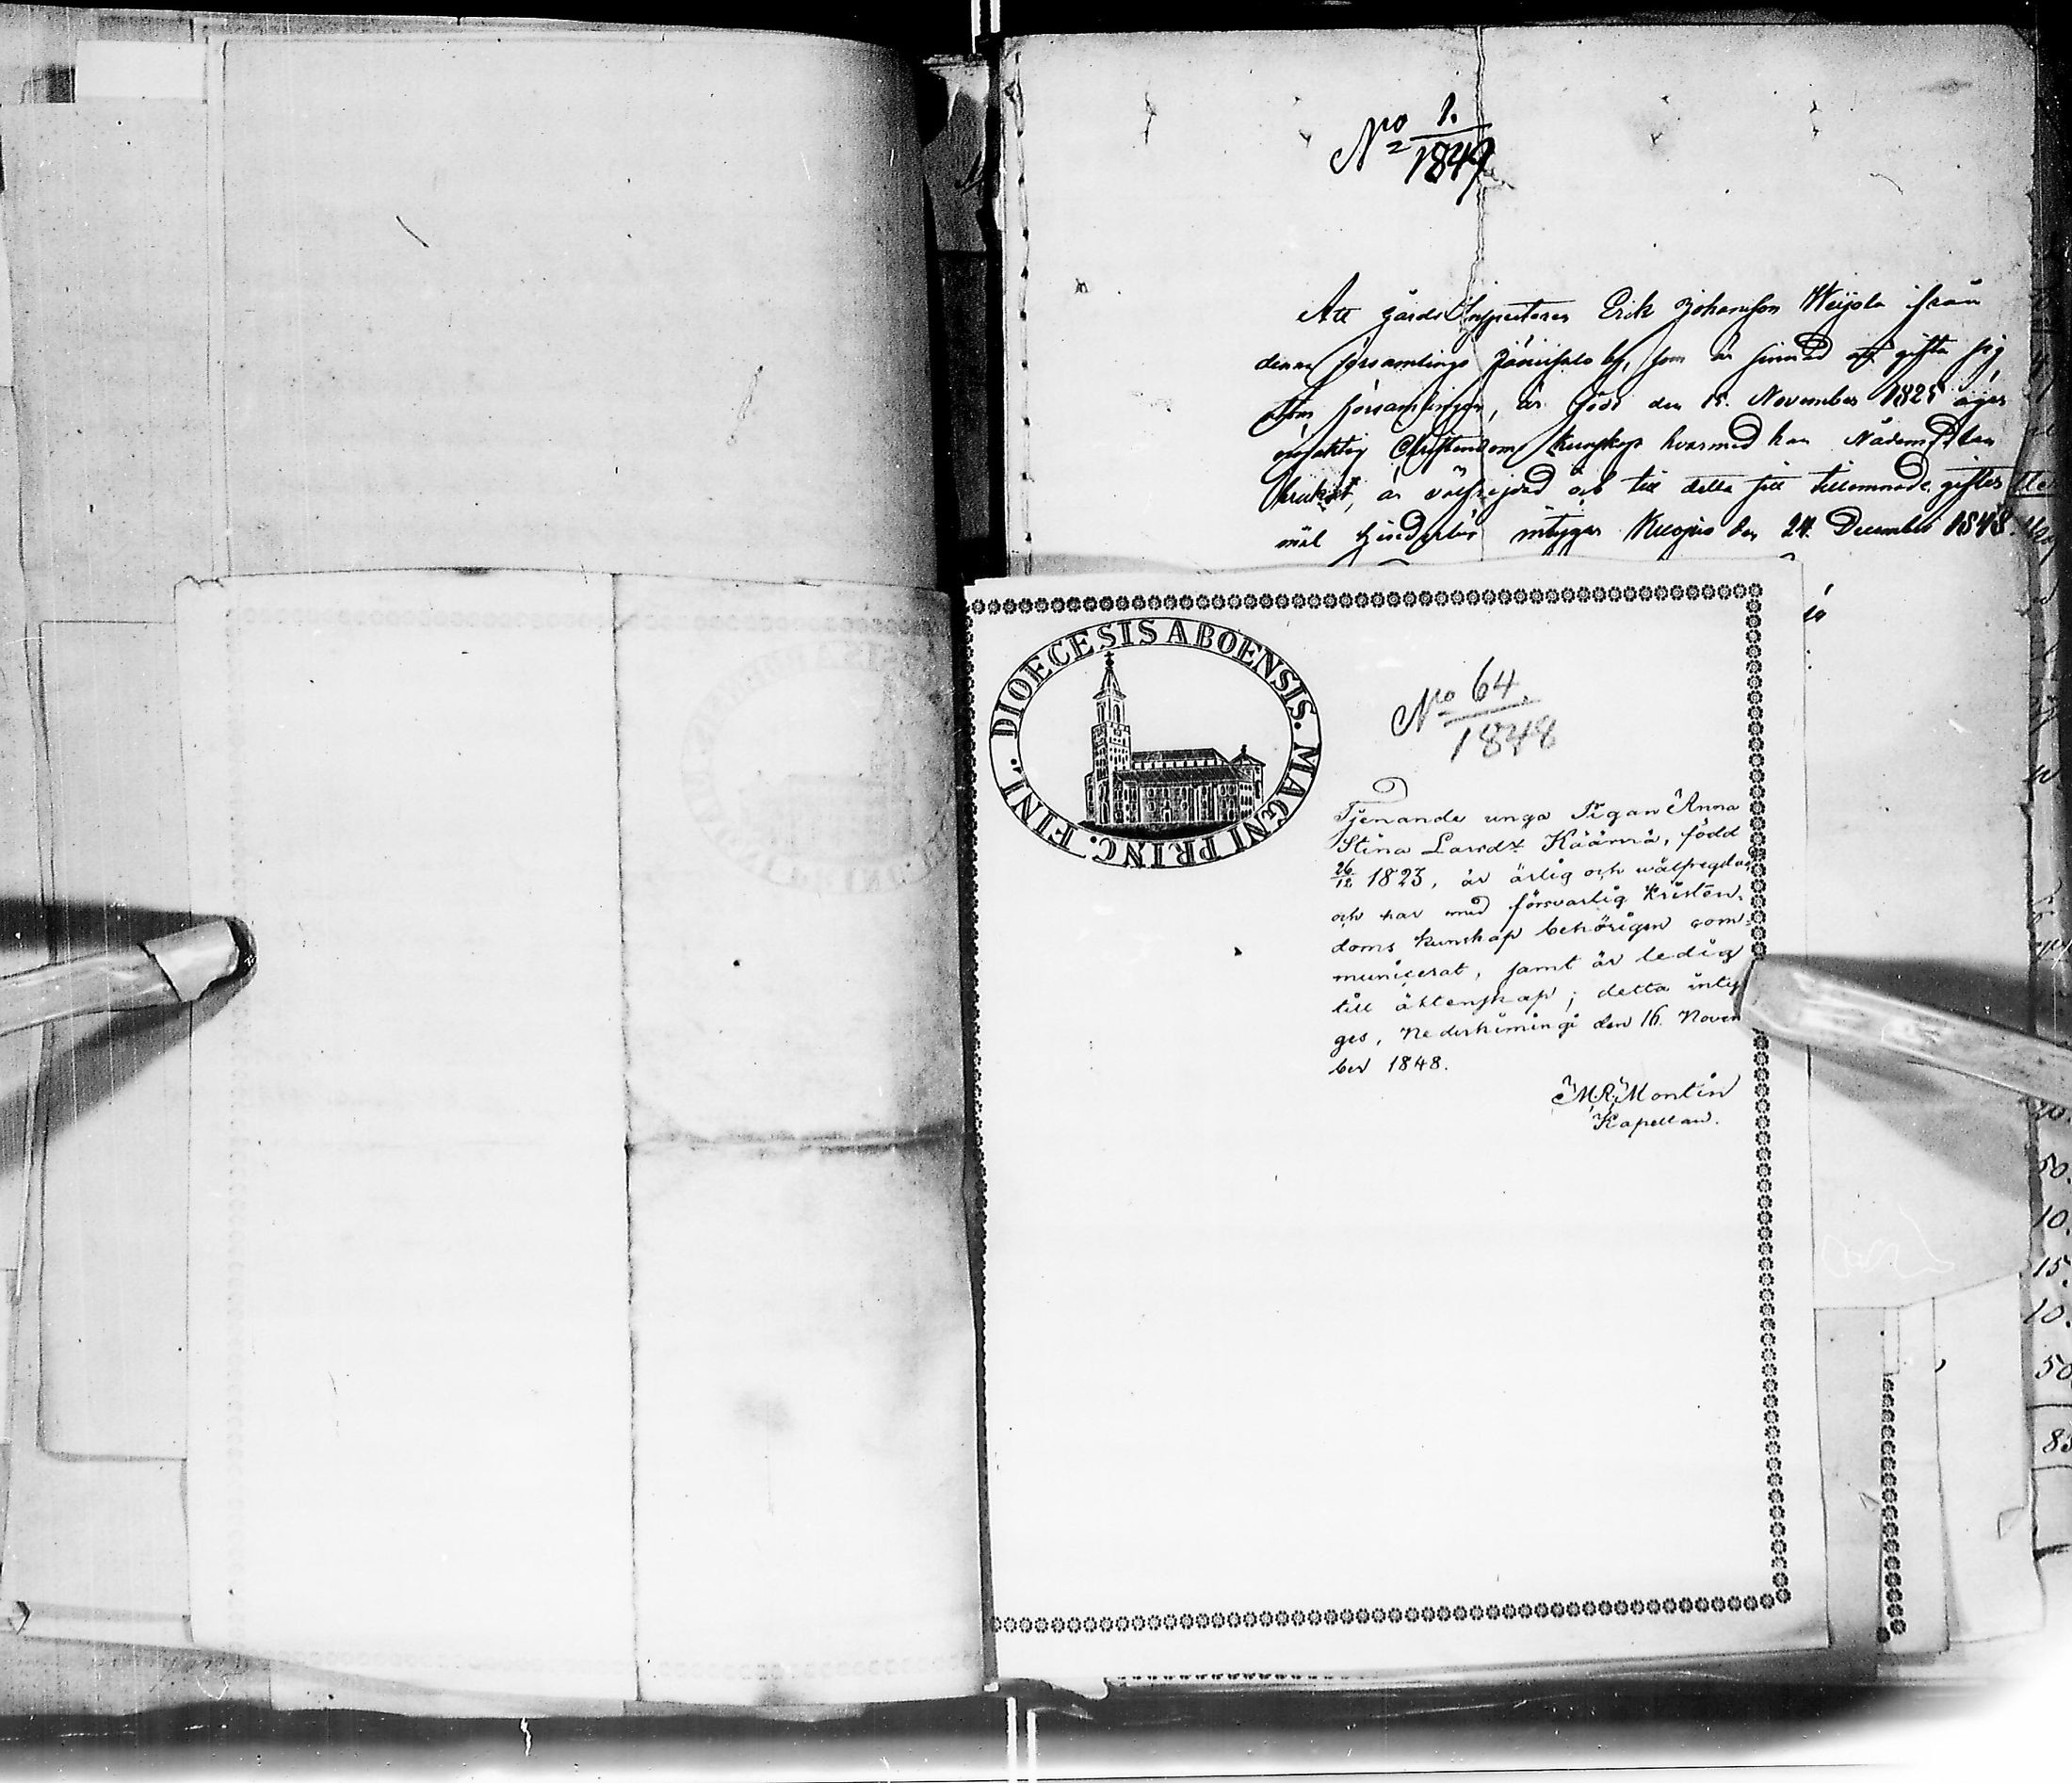 No 1.
1849
Att Gårds Inspectoren Erik Johansson Weijola ifrån
denna församlings Jänneh by, som är sinnad att gifta sig
utom församlingen, är född den 15. November 1825 äger
Christendoms kunskap hvarmed han Nådemedlen
brukat, är välfrejdad och till detta sitt tillernade gifter
mål hinderlös intygar Kuopio den 24. December 1848.
DIOECESIS ABOENSIS. MAGNI PRINC. FINI.
No 64.
1848
Tjenande unga Pigan Anna
Stina Larsdr Käärnä, född
26/12 1823, är ärlig och wälfregdad,
och har med försvarlig Kristen-
doms kunskap behörigen com-
municerat, samt är ledig
till äktenskap; detta inty
ges, Nederhimingi den 16. Novem
ber 1848.
M. R. Montin
Kapellan.
20.
50.
10.
15.
10.
50